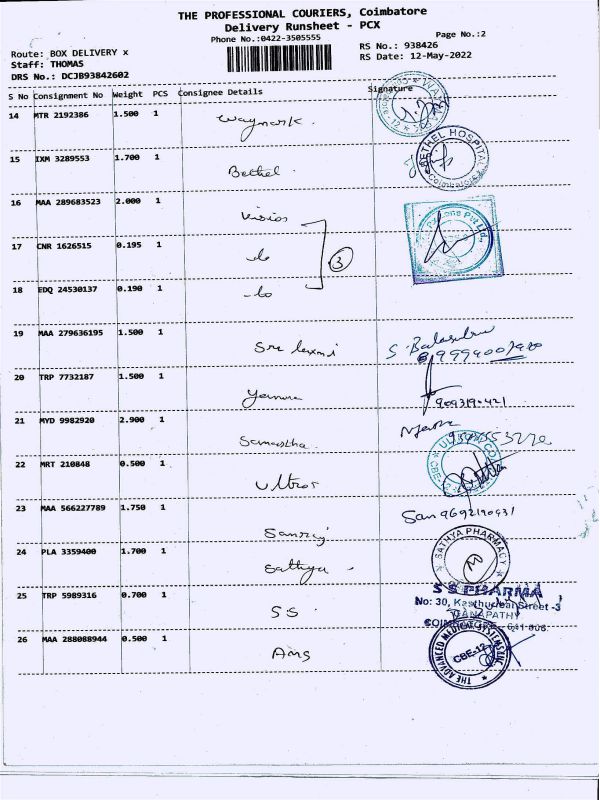 THE PROFESSIONAL COURIERS, Coimbatore
Delivery Runsheet - PCX
Phone No.:0422-3505555
Page No.:2
Route: BOX DELIVERY x
RS No.: 938426
Staff: THOMAS
RS Date: 12-May-2022
DRS No.: DCJB93842602
S No Consignment No Weight PCS Consignee Details Signature
14 MTR 2192386 1.500 1 Waymark.
15 IXM 3289553 1.700 1 Bethel. BETHEL HOSPITAL
16 MAA 289683523 2.000 1 Pvt Ltd
17 CNR 1626515 0.195 1 3
18 EDQ 24530137 0.190 1
19 MAA 279636195 1.500 1 Sree laxmi S. Balasubra
20 TRP 7732187 1.500 1 Yamuna 9093190421
21 MYD 9982920 2.900 1 Samastha.
22 MRT 210848 0.500 1 Ultros
23 MAA 566227789 1.750 1 San 9692190931
24 PLA 3359400 1.700 1 Sathya. SATHYA PHARMACY
25 TRP 5989316 0.700 1 SS. S S PHARMA
No: 30, Kasthuribai Street -3
GANAPATHY
26 MAA 288088944 0.500 1 Ams THE ADVANCED MEDICAL SYSTEMS INC CBE-12